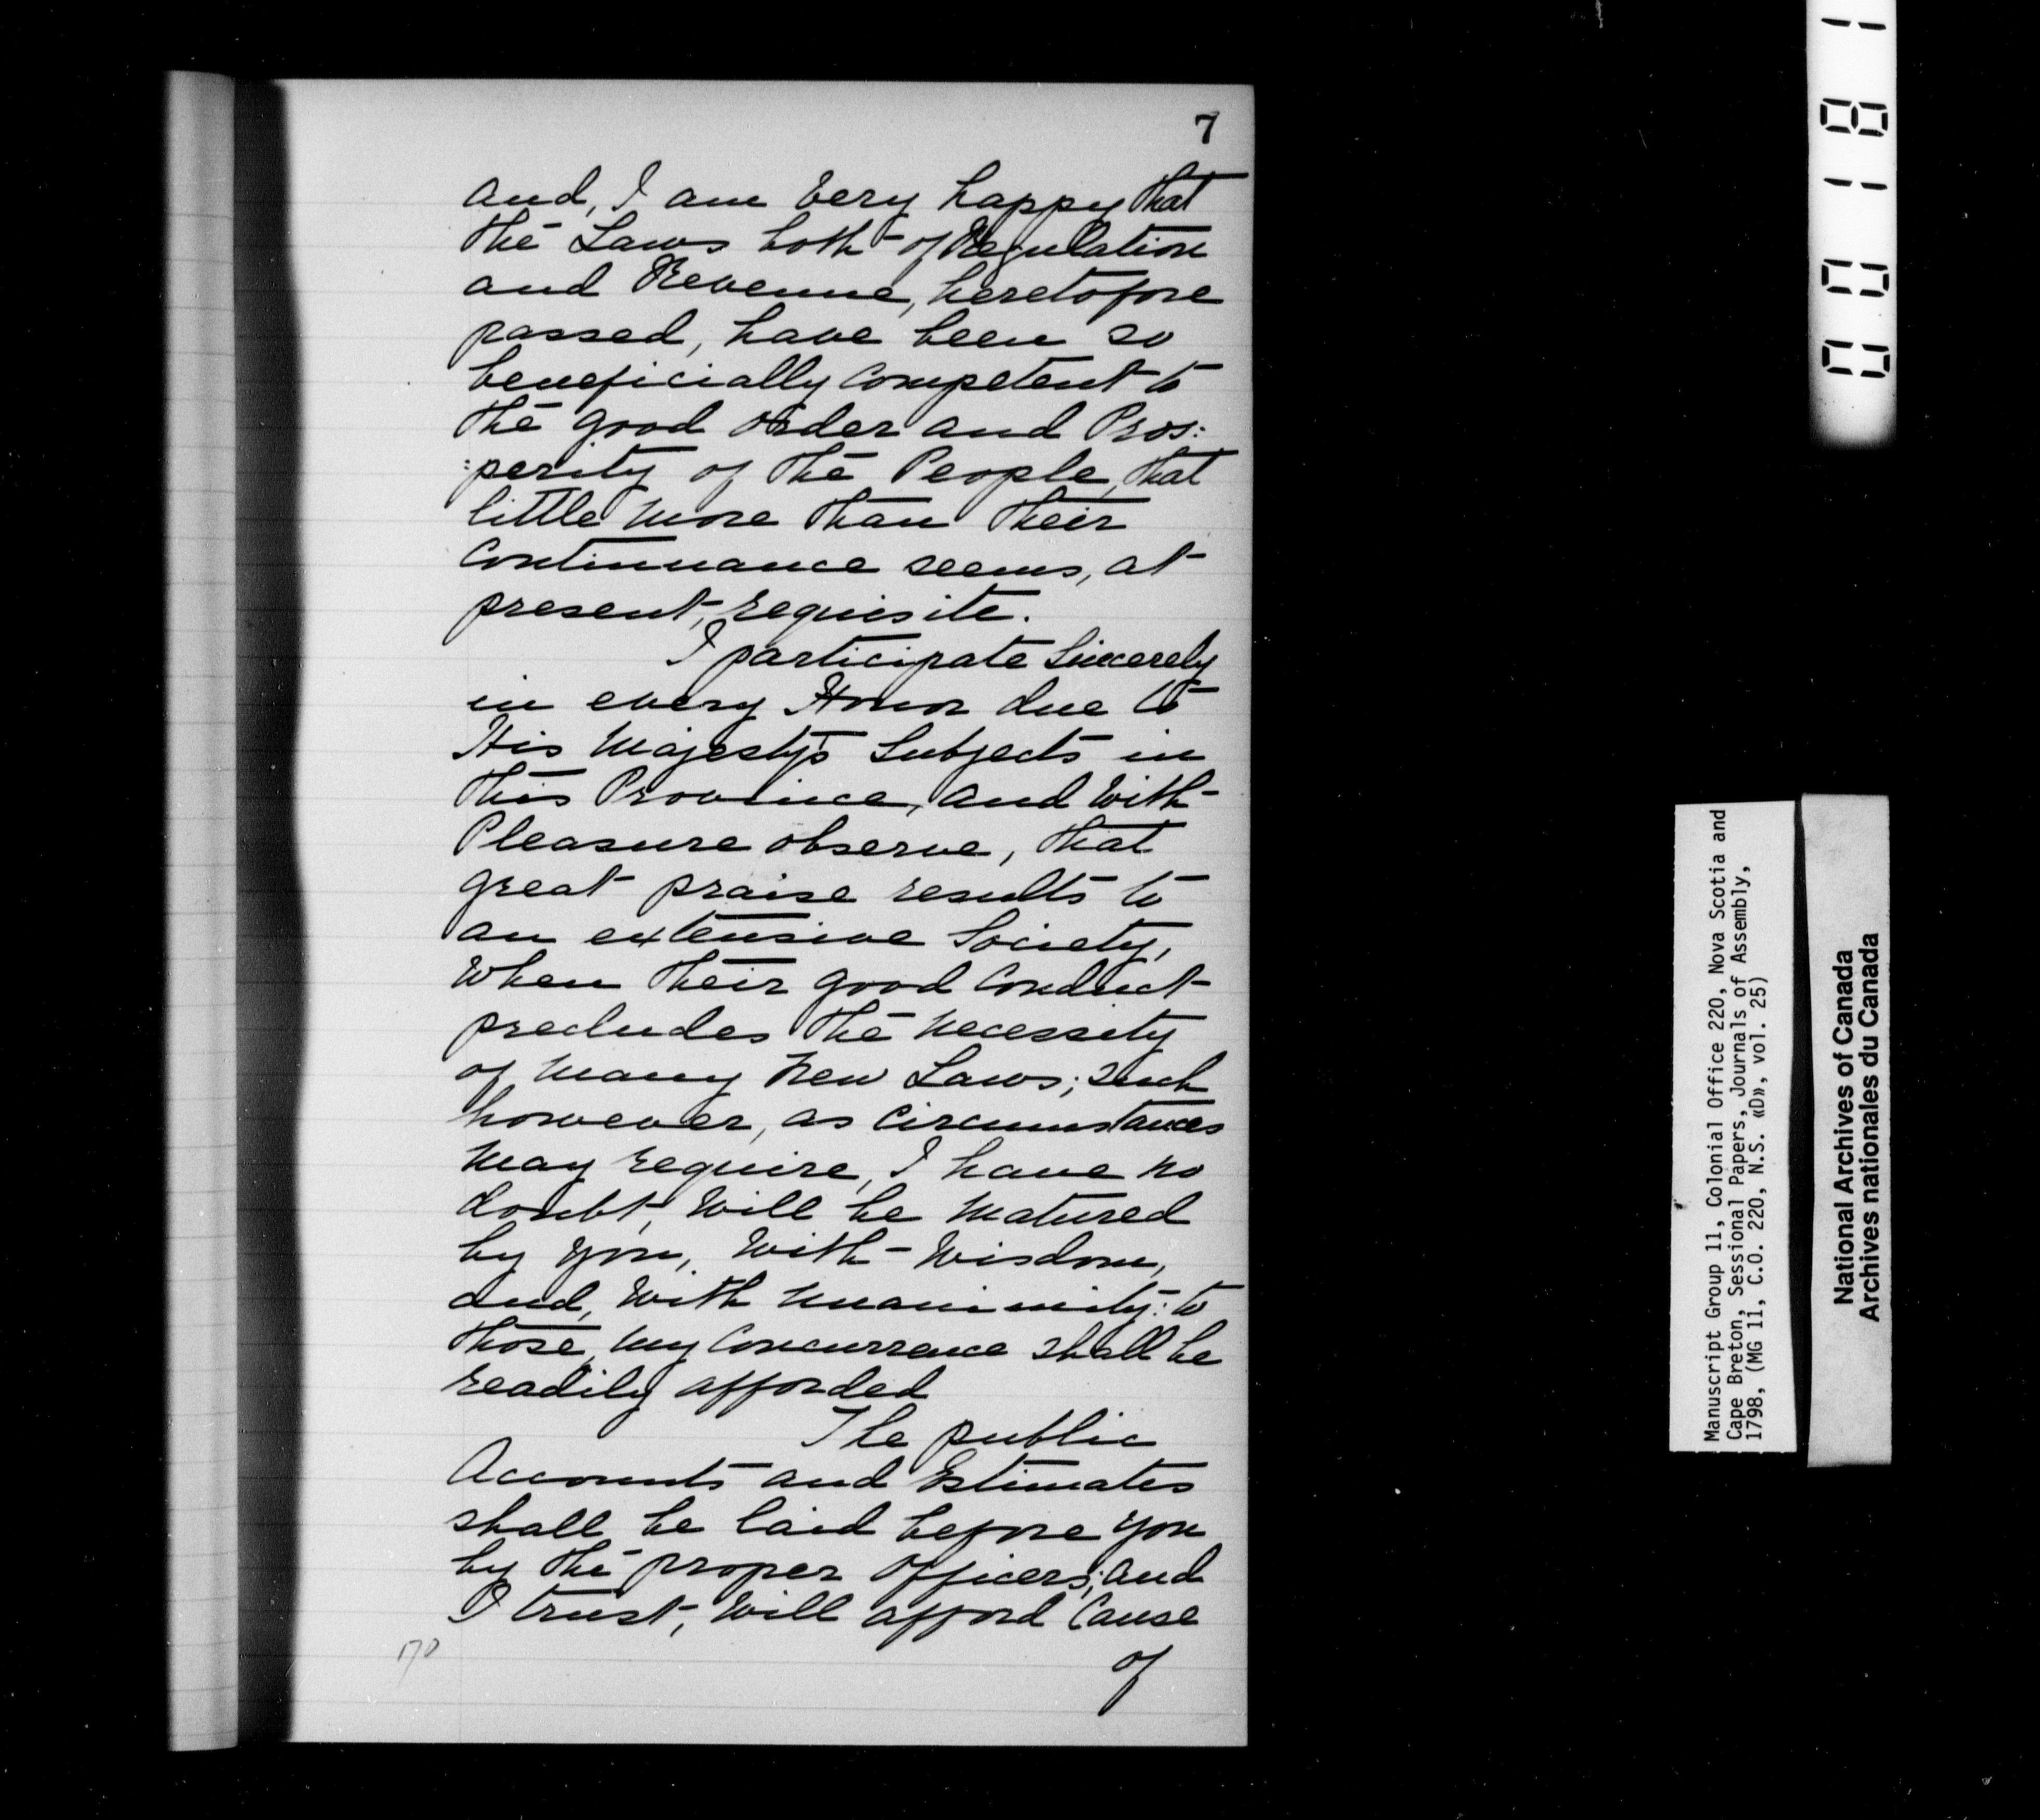 7
and, I am very happy that
the Laws both of Regulation
and Revenue, heretofore
passed, have been so
beneficially competent to
the good order and Pros:
:perity of the People, that
little more than their
Continuance seems, at
present, requisite.
I participate Sincerely
in every Honor due to
His Majesty's Subjects in
this Province, and with
Pleasure observe, that
great praise results to
an extensive Society,
when their good Conduct
precludes the necessity
of many new Laws; such
however, as Circumstances
may require, I have no
doubt, will be matured
by you, with Wisdom,
and, with unanimity: to
those, my Concurrence shall be
readily afforded
The public
Accounts and Estimates
shall be laid before you
by the proper Officers; and
I trust, will afford Cause
of
170
00181
Manuscript Group 11, Colonial Office 220, Nova Scotia and
Cape Breton, Sessional Papers, Journals of Assembly,
1798, (MG 11, C.O. 220, N.S. «D», vol. 25)
National Archives of Canada
Archives nationales du Canada